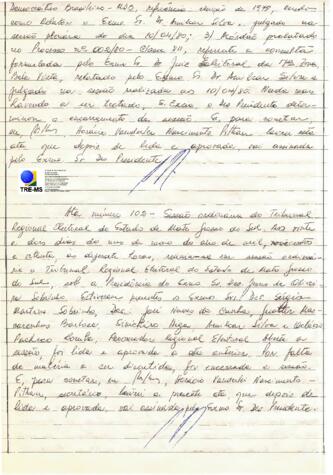 Democrático Brasileiro - MDB, referência eleição de 1978, sendo
como relator o Exmo Sr. Dr. Amilcar Silva, julgado na
sessão plenária do dia 10/04/80; 3) Acórdão prolatado
no Processo nº 002/80 - Classe VII, referente a consulta
formulada pelo Exmo Sr. Dr. Juiz Eleitoral da Zona
Bela Vista, relatado pelo Exmo Sr. Dr. Amilcar Silva e
julgado na sessão realizada aos 10/04/80. Nada mais
havendo a ser tratado, S. Exa., o Des. Presidente deter-
minou o encerramento da sessão. E, para constar,
eu, Horácio Vanderlei Nascimento Pithan, lavrei esta
ata que depois de lida e aprovada, vai assinada
pelo Exmo Sr. Des. Presidente.
TRE-MS
Ata número 105 - Sessão ordinária do Tribunal
Regional Eleitoral do Estado de Mato Grosso do Sul. Aos vinte
e dois dias do mês de maio do ano de mil, novecentos
e oitenta, às dezoito horas, reuniu-se em sessão ordiná-
ria o Tribunal Regional Eleitoral do Estado de Mato Grosso
do Sul, sob a Presidência do Exmo Sr. Des. Jesus de Oliveira
Sobrinho. Estiveram presentes os Exmos. Srs. Des. Sérgio
Martins Sobrinho, Drs. José Nunes da Cunha,
Barbosa, Amilcar Silva e
Pacheco, Procurador Regional Eleitoral. Aberta a
sessão, foi lida e aprovada a ata anterior. Por falta
de matéria a ser discutida, foi encerrada a sessão.
E, para constar, eu, Horácio Vanderlei Nascimento
Pithan, secretário, lavrei a presente ata que depois de
lida e aprovada, vai assinada pelo Exmo Sr. Des. Presidente.